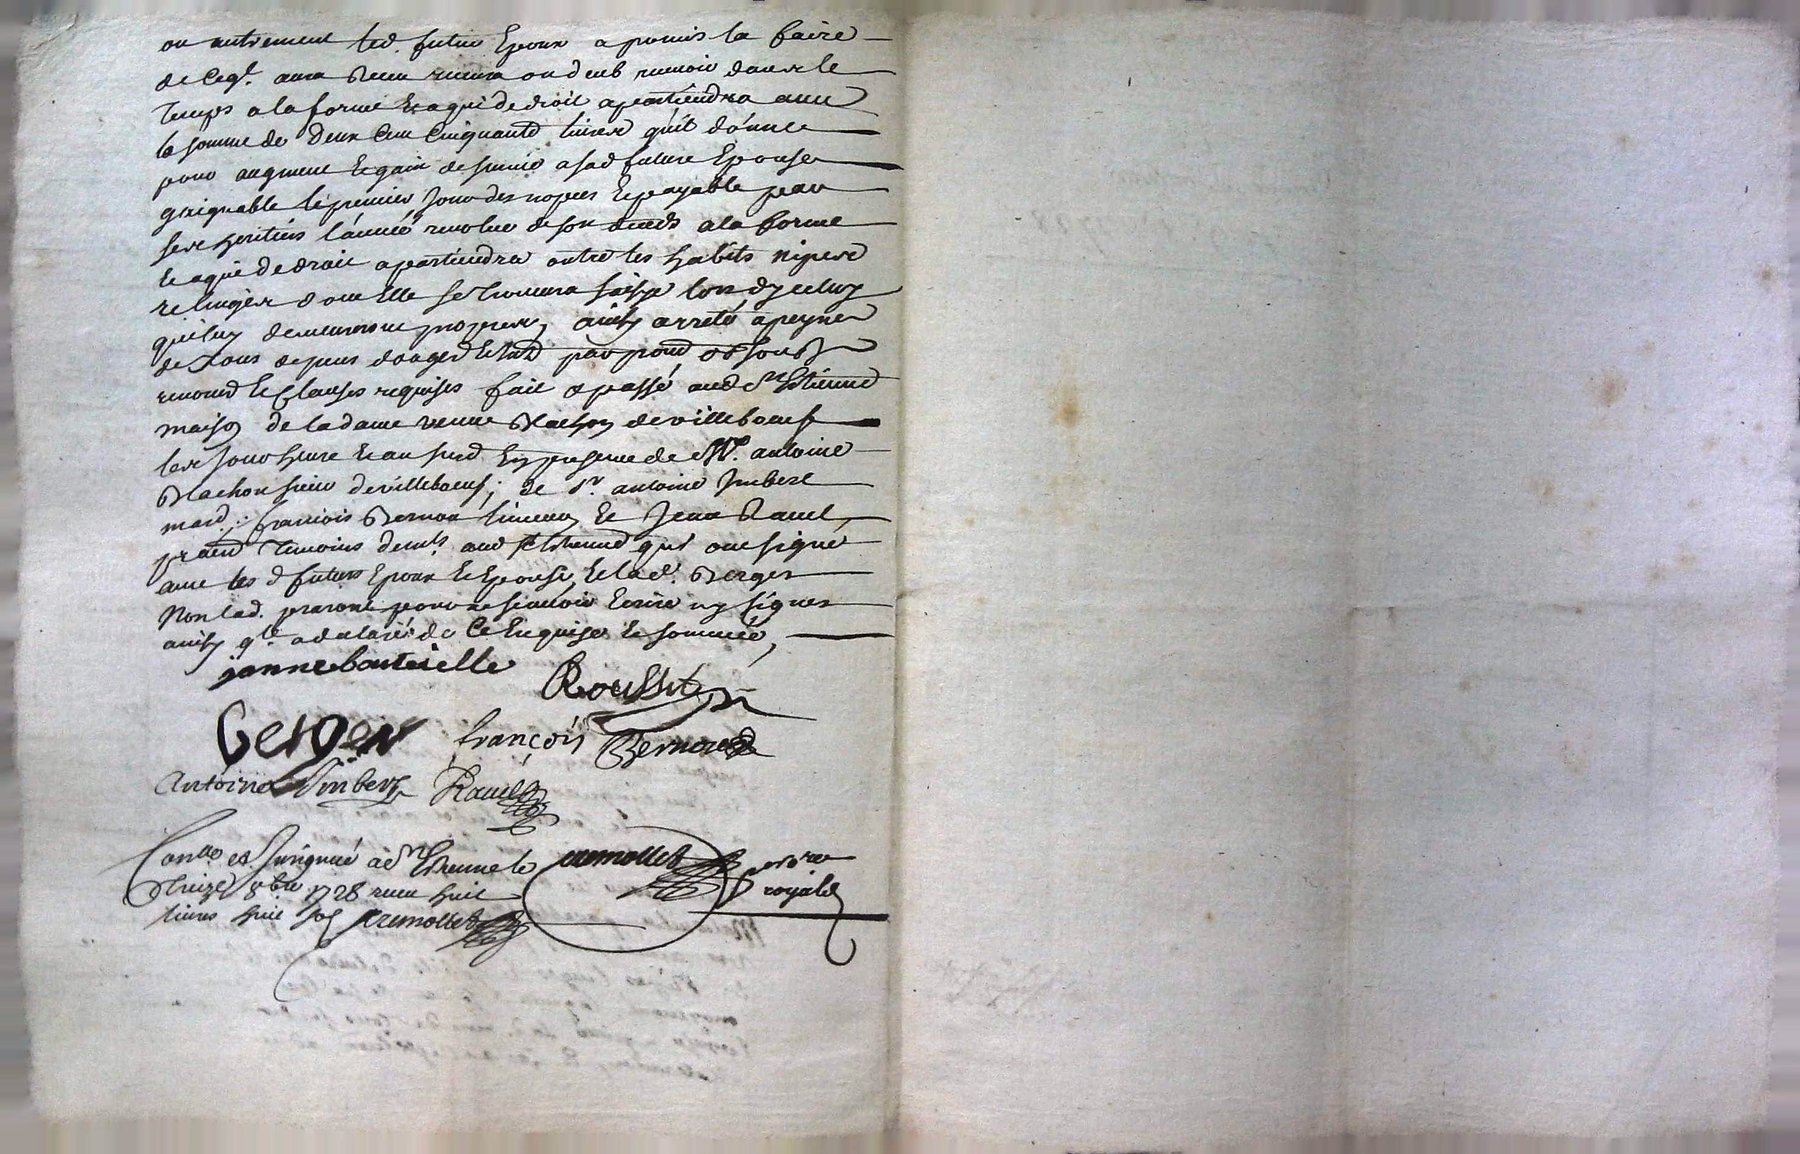 ou autrement led. futur Epoux a promis la faire
de ce q.l aura Receu recevra ou deub recevoir dans le
temps a la forme Et a qui de droit apartiendra avec
la somme de Deux Cent Cinquante livres qu'il donne
pour augment Et gain de survie a sad future Epouse
gaignable le premier Jour des nopces Et payable par
ses heritiers l'année revolue de son deceds a la forme
Et a qui de droit apartiendra outre les habits nipes
Et linges dont Elle se trouvera saisye lors d'yceluy
qui luy demeureront propres, ainsy arreté a peyne
de tous depens domages
renond Et Clauses requises fait & passé aud S.t Etienne
maison de la dame veuve Blachon de villeboeuf
les Jour heure Et an susd. En presence de M.e antoine
Blachon sieur de villeboeuf, de S.r antoine Imbert
march. francois Bernou Et Jean Ravel
praticien Temoins demt. aud St Etienne qui ont signé
avec les d futurs Epoux Et Epouse, Et lad. Berger
Non lad. pour ne scavoir Ecrire ny signer
ainsy q.le a declaré de Ce Enquise Et sommée,
janne bouteielle
Rousset
Berger
françois Bernou
Antoine Imbert
Ravel
Con.llé et Insignué a S.t Etienne le
8bre 1728 receu huit
livres huit sols Cremollet
Cremollet no.re
royal